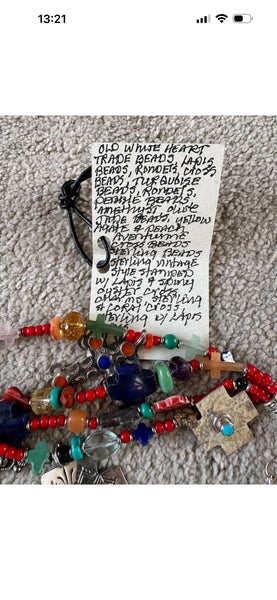 13:21
OLD WHITE HEART
TRADE BEADS, LAPIS
BEADS, RONDELS, CROSS
BEADS, TURQUOISE
BEADS, RONDELS,
PEBBLE BEADS,
AMETHYST, OLIVE
JADE BEADS, YELLOW
AGATE & PEACH
AVENTURINE
CROSS BEADS
STERLING BEADS
STERLING VINTAGE
STYLE STAMPED
W/ LAPIS & SPINY
OYSTER CROSS
CHARMS, STERLING
& CORAL CROSS
STERLING W/ LAPIS